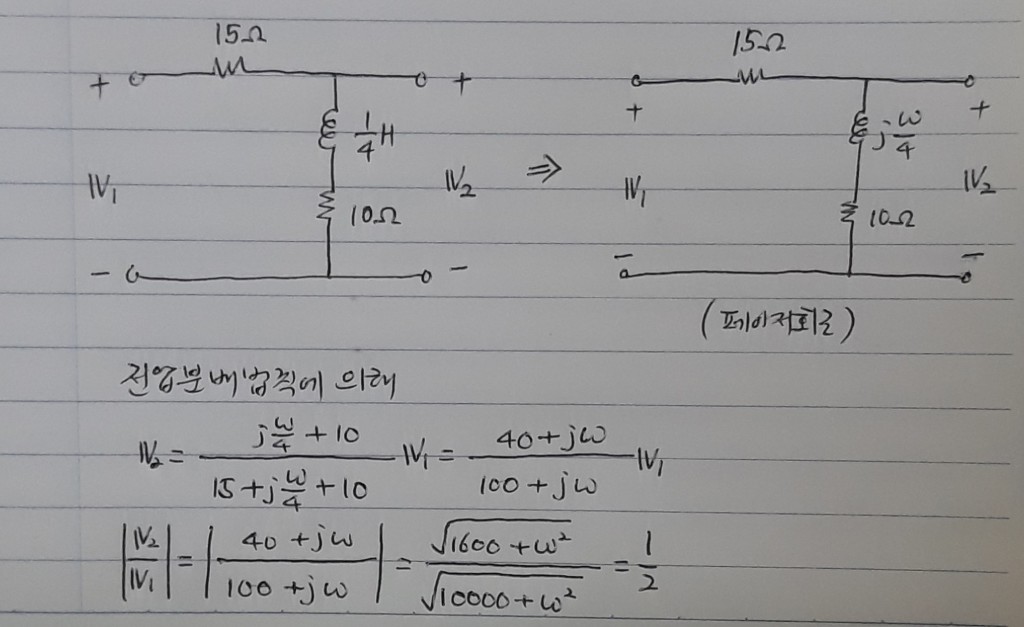 15Ω 15Ω
+ + + +
1/4 H j ω/4
V₁ V₂ ⇒ V₁ V₂
10Ω 10Ω
- - - -
(페이저회로)
전압분배법칙에 의해
V₂ = (j ω/4 + 10)/(15 + j ω/4 + 10) V₁ = (40 + jω)/(100 + jω) V₁
|V₂/V₁| = |(40 + jω)/(100 + jω)| = √(1600 + ω²)/√(10000 + ω²) = 1/2